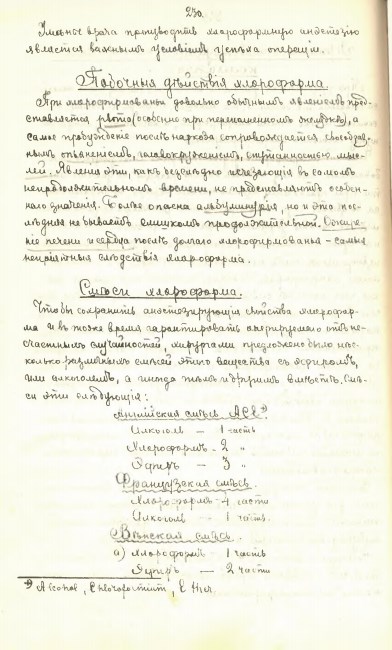 250.
Умѣнье врача производить хлороформную анестезію
является важнымъ условіемъ успѣха операціи.
Побочныя дѣйствія хлороформа.
При хлороформированіи довольно обычнымъ явленіемъ пред-
ставляется рвота (особенно при переполненномъ желудкѣ), а
самое пробужденіе послѣ наркоза сопровождается своеобраз-
нымъ опьяненіемъ, головокруженіемъ, спутанностью мыс-
лей. Явленія эти, какъ безслѣдно исчезающія въ самомъ
непродолжительномъ времени, не представляютъ особен-
наго значенія. Болѣе опасна альбуминурія, но и эта пос-
лѣдняя не бываетъ слишкомъ продолжительной. Ожире-
ніе печени и сердца послѣ долгаго хлороформированья – самыя
непріятныя слѣдствія хлороформа.
Смѣси хлороформа.
Чтобы сохранить анестезирующія свойства хлорофор-
ма и въ тоже время гарантировать оперируемаго отъ не-
счастныхъ случайностей, хирургами предложено было нѣс-
колько различныхъ смѣсей этого вещества съ эфиромъ,
или алкоголемъ, а иногда тѣмъ и другимъ вмѣстѣ. Смѣ-
си эти слѣдующія:
Англійская смѣсь АСЕ*)
Алкоголь – 1 часть
Хлороформъ – 2 "
Эфиръ – 3 "
Французская смѣсь.
Хлороформъ – 4 части
Алкоголь – 1 часть.
Вѣнская смѣсь.
а) Хлороформъ – 1 часть
Эфиръ – 2 части